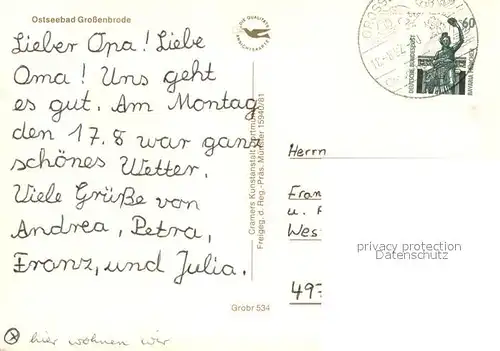 Ostseebad Großenbrode
DIE QUALITÄTS
ANSICHTSKARTE
Lieber Opa! Liebe
Oma! Uns geht
es gut. Am Montag
den 17.8 war ganz
schönes Wetter.
Viele Grüße von
Andrea, Petra,
Franz, und Julia.
Cramers Kunstanstalt Dortmund
Freigeg. d. Reg.-Präs. Münster 15940/81
60
DEUTSCHE BUNDESPOST
BAVARIA MÜNCHEN
Herrn
Fran
u.
Wes
privacy protection
49
Grobr 534
hier wohnen wir